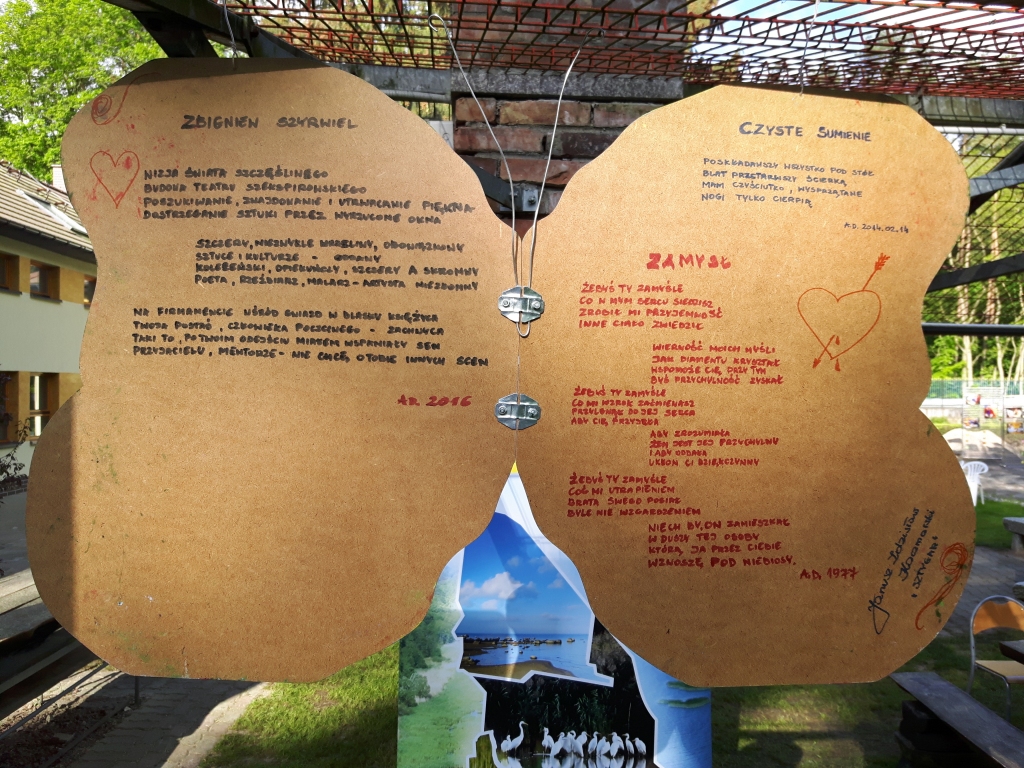 ZBIGNIEN SZYRWIEL
NIZJA ŚWIATA SZCZĘŚLINEGO
BUDOWA TEATRU SZEKSPIROWSKIEGO
POSZUKIWANIE, ZNAJDOWANIE I UTRWACANIE PIĘKNA-
DOSTRZEGANIE SZTUKI PRZEZ WYRZUCONE OKNA
SZCZERY, NIEZWYKLE WRAŻLINY, OBOWIĄZKOWY
SZTUCE I KULTURZE - ODDANY
KOLEŻEŃSKI, OPIEKUŃCZY, SZCZERY A SKROMNY
POETA, RZEŹBIARZ, MALARZ - ARTYSTA NIEZŁOMNY
NA FIRMAMENCIE WŚRÓD GWIAZD W BLASKU KSIĘŻYCA
TWOJA POSTAĆ, CZŁOWIEKA POCZCIWEGO - ZACHWYCA
TAKI TO, PO TWOIM ODEJŚCIU MIAŁEM WSPANIAŁY SEN
PRZYJACIELU, MENTORZE - NIE CHCĘ O TOBIE INNYCH SCEN
AD. 2016
CZYSTE SUMIENIE
POSKŁADAWSZY WSZYSTKO POD STÓŁ
BLAT PRZETARWSZY ŚCIERKĄ
MAM CZYŚCIUTKO, WYSPRZĄTANE
NOGI TYLKO CIERPIĄ
A.D. 2014.02.14
ZAMYSŁ
ŻEBYŚ TY ZAMYŚLE
CO W MYM SERCU SIEDZISZ
ZROBIŁ MI PRZYJEMNOŚĆ
INNE CIAŁO ZWIEDZIŁ
WIERNOŚĆ MOICH MYŚLI
JAK DIAMENTU KRYSZTAŁ
WSPOMOŻE CIĘ, PRZY TYM
BYŚ PRZYCHYLNOŚĆ ZYSKAŁ
ŻEBYŚ TY ZAMYŚLE
CO MI WZROK ZAĆMIEWASZ
PRZYLGNĄŁ DO JEJ SERCA
ABY CIĘ PRZYJĘŁA
ABY ZROZUMIAŁA
ŻEM JEST JEJ PRZYCHYLNY
I ABY ODDAŁA
UKŁON CI DZIĘKCZYNNY
ŻEBYŚ TY ZAMYŚLE
COŚ MI UTRAPIENIEM
BRATA SWEGO POSŁAŁ
BYLE NIE WZGARDZENIEM
NIECH BY, ON ZAMIESZKAŁ
W DUSZY TEJ OSOBY
KTÓRĄ, JA PRZEZ CIEBIE
WZNOSZĘ, POD NIEBIOSY.
A.D. 1977
Janusz Zdzisław
"SZTYGAR"